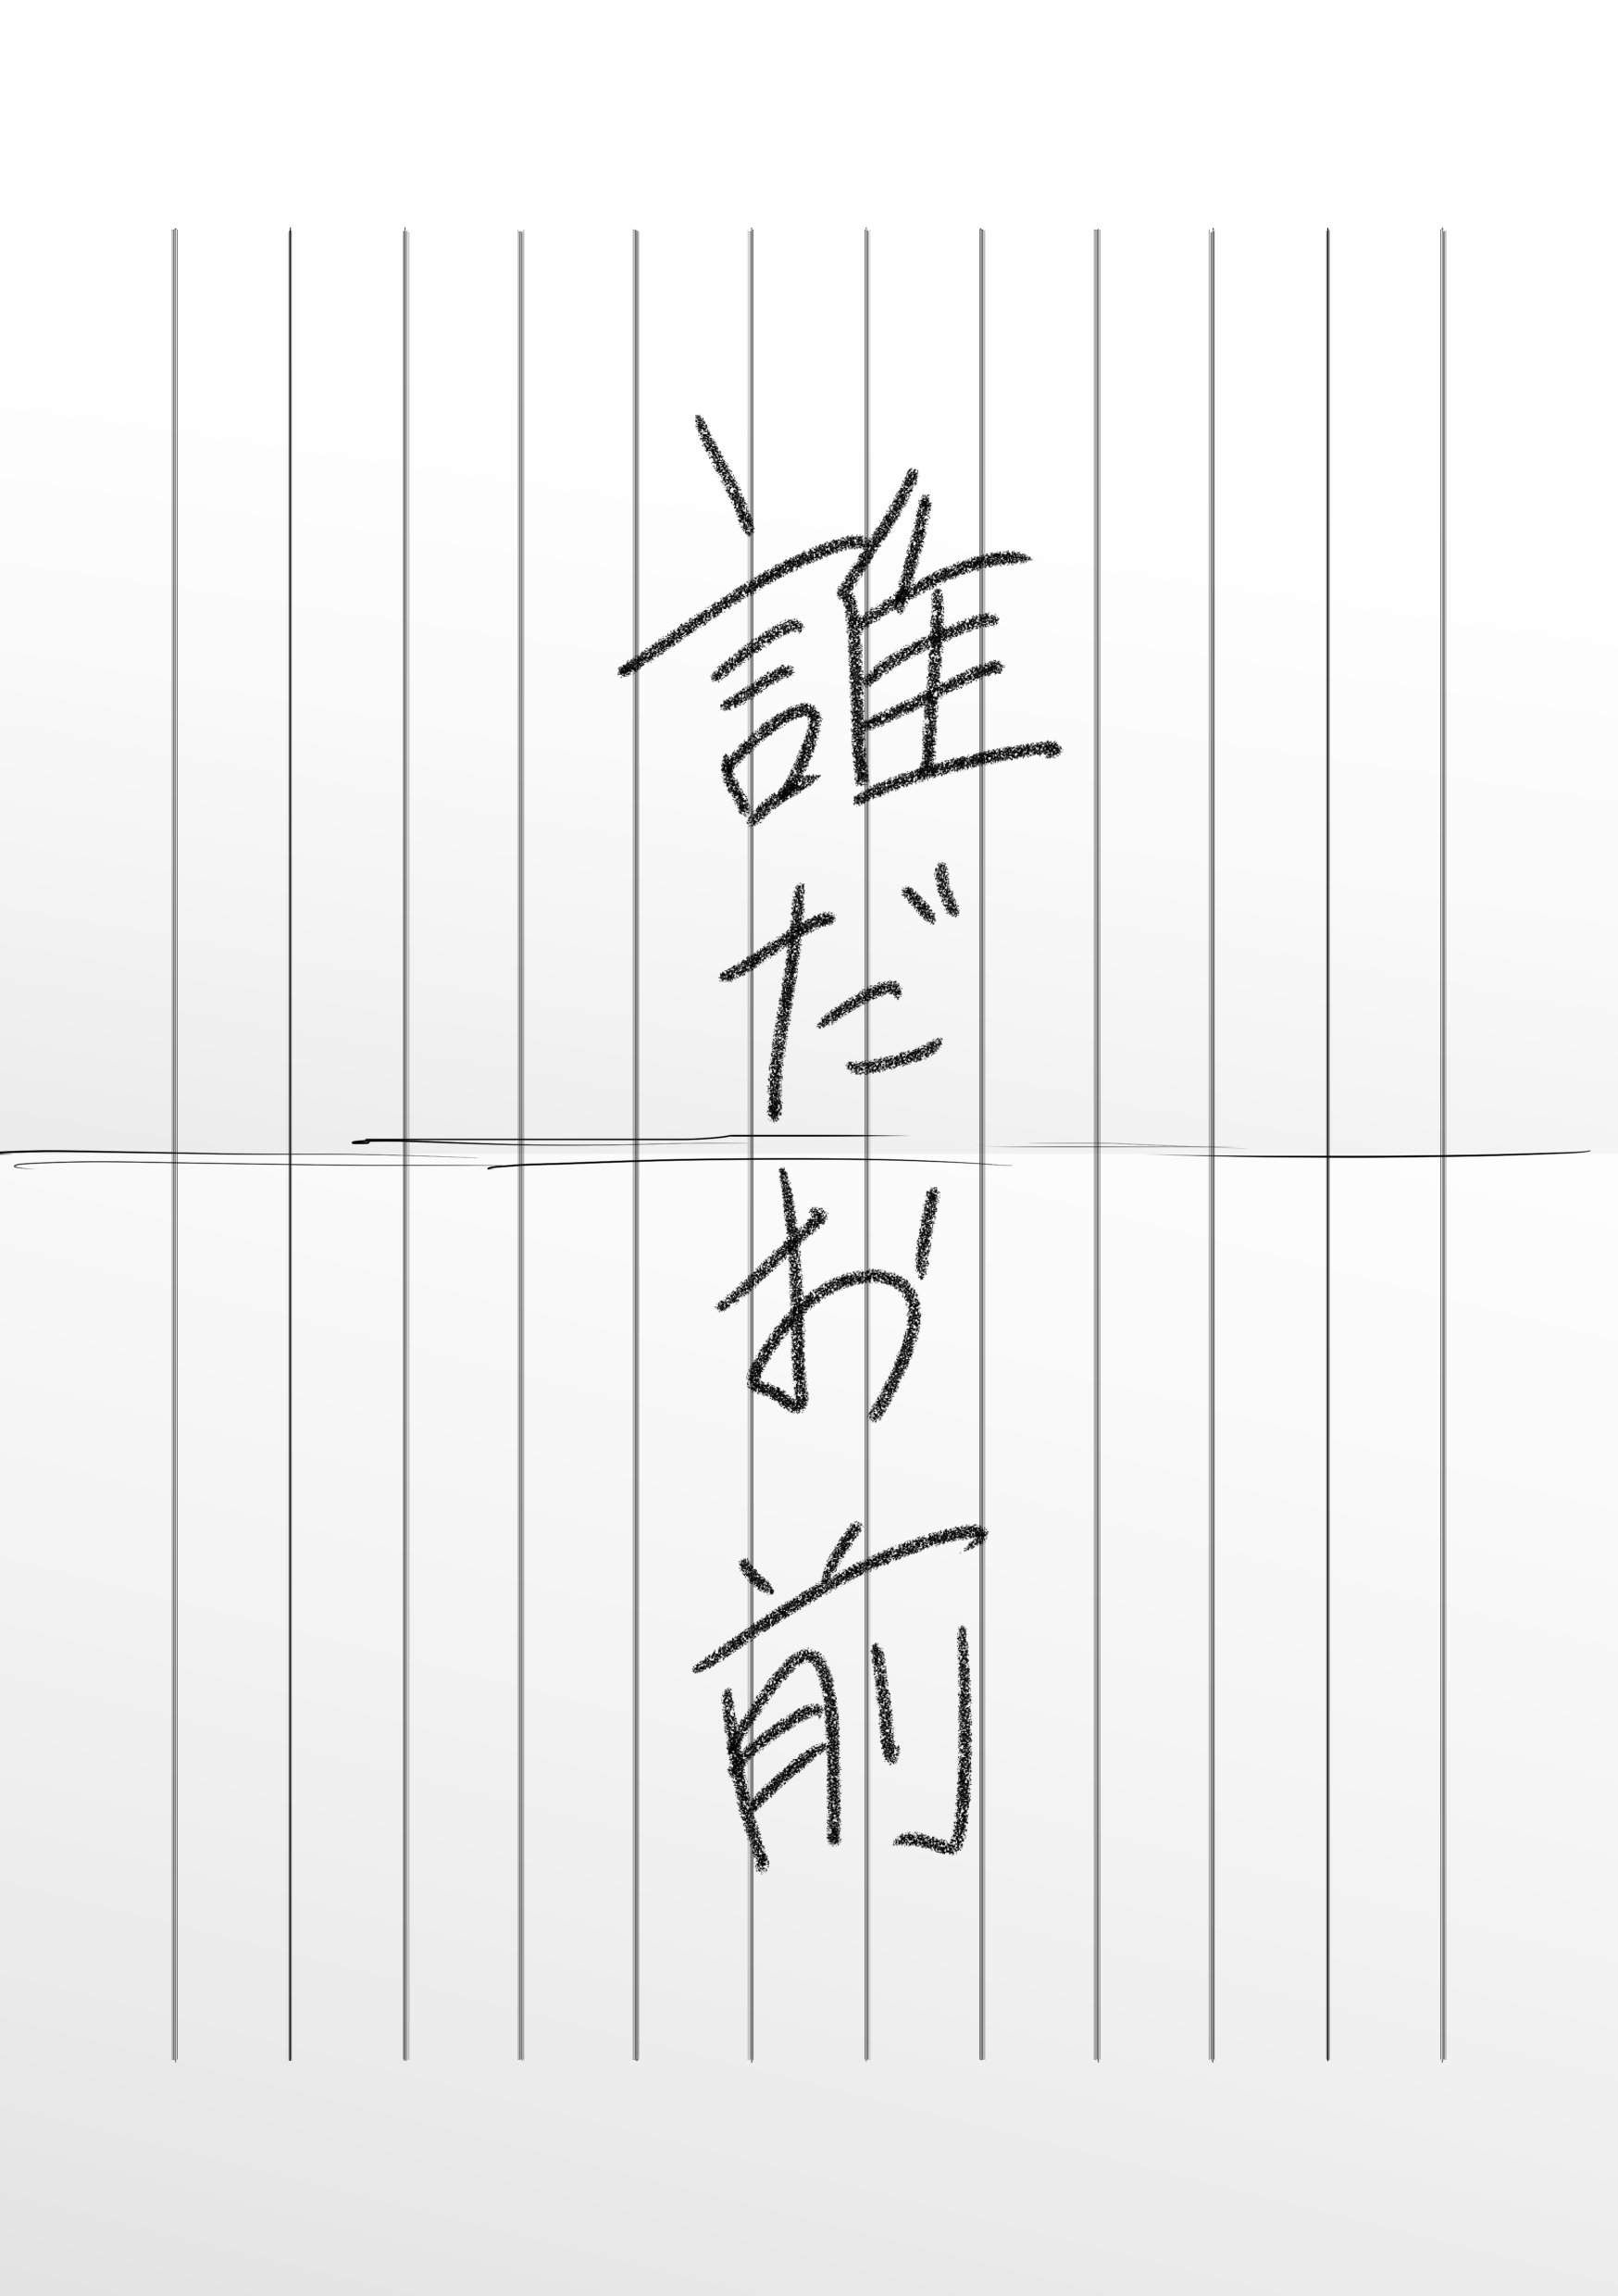 誰だお前